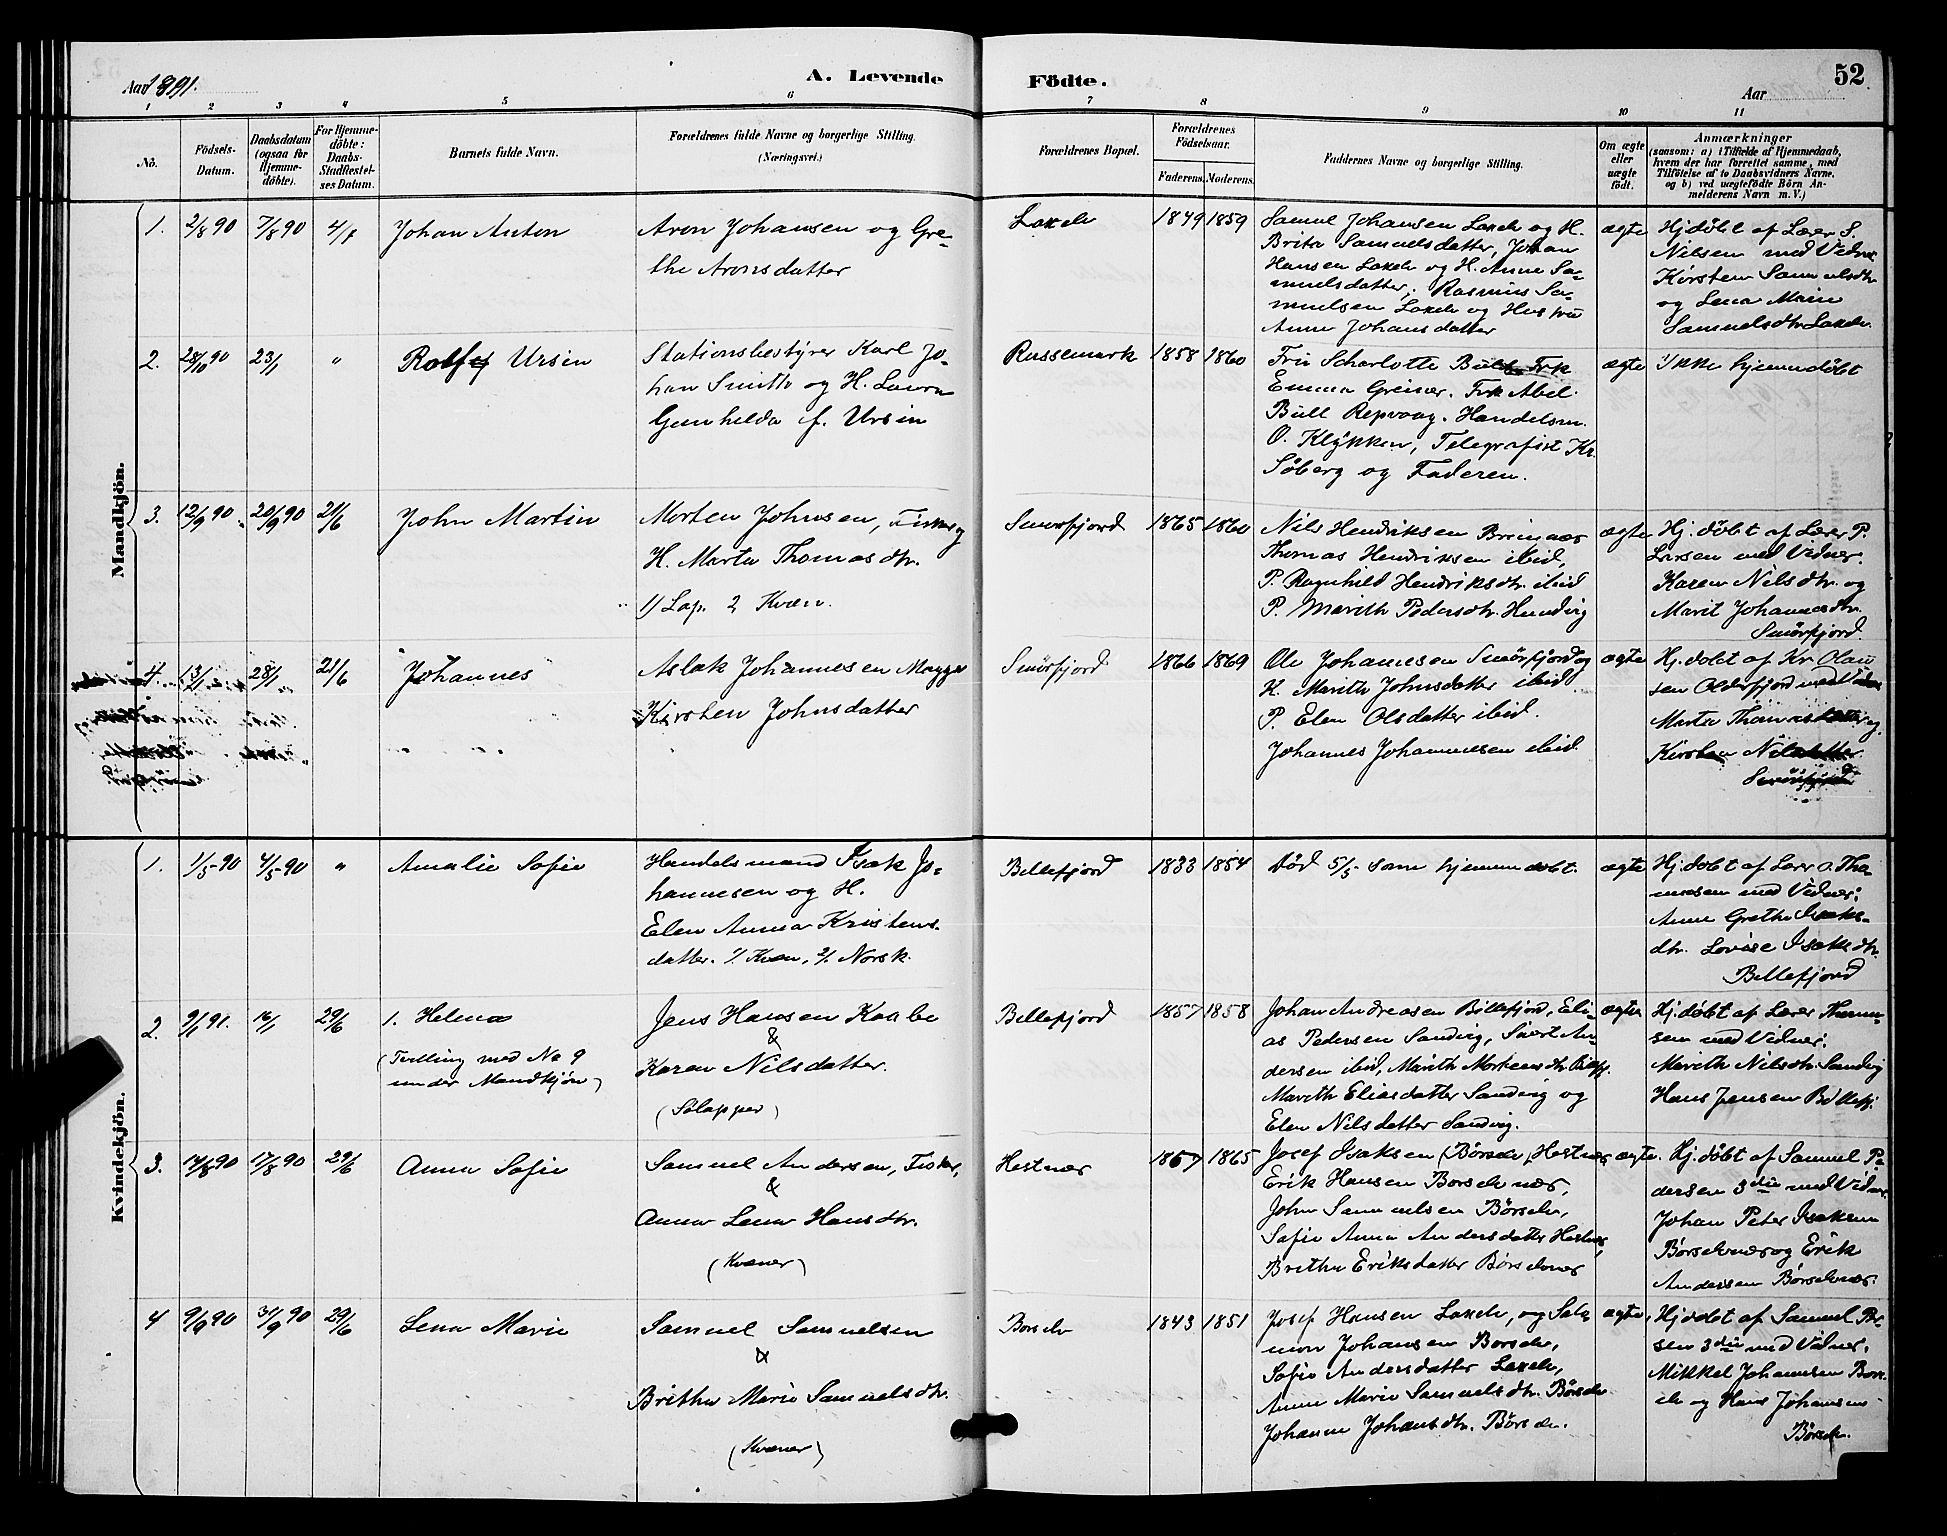 Aar 1891.
A. Levende
Födte.
Aar
52
1 2 3 4 5 6 7 8 9 10 11
No.
Födsels-
Datum.
Daabsdatum
(ogsaa for
Hjemme-
döbte).
For Hjemme-
döbte:
Daabs-
Stadfæstel-
ses Datum.
Barnets fulde Navn.
Forældrenes fulde Navne og borgerlige Stilling.
(Næringsvei.)
Forældrenes Bopæl.
Forældrenes
Födselsaar.
Faderens.
Moderens.
Faddernes Navne og borgerlige Stilling.
Om ægte
eller
uægte
födt.
Anmærkninger
(saasom: a) i Tilfælde af Hjemmedaab,
hvem der har forrettet samme, med
Tilföielse af to Daabsvidners Navne,
og b) ved uægtefödte Börn An-
melderens Navn m. V.)
Mandkjön.
1. 2/8 90 7/8 90 4/7
Johan Anton
Aron Johansen og Gre-
the Aronsdatter
Laxelv
1849 1859
Samul Johansen Laxelv og H.
Brita Samuelsdatter, Johan
Hansen Laxelv og H. Anne Sa-
muelsdatter, Rasmus Sa-
muelsen Laxelv og Hustru
Anne Johansdatter
ægte
Hj.döbt af Lærer S.
Nilsen med Vidner
Kirsten Samuelsdtr
og Lena Marie
Samuelsdtr Laxelv.
2. 28/10 90 23/1 "
Rolf Ursin
Stationsbestyrer Karl Jo-
han Smith og H. Laura
Gunhilda f. Ursin
Russemark
1858 1860
Fru Scharlotte Bull Frk
Emma Greiner. Frk Abel
Bull Repvaag. Handelsm.
O. Klykken, Telegrafist Kr.
Söberg og Faderen.
ægte
Ikke hjemmedöbt
3. 12/9 90 20/9 90 21/6
John Martin
Morten Johnsen, Fisker og
H. Marta Thomasdtr.
1) Lap. 2 Kvæn.
Smörfjord
1865 1860
Nils Hendriksen Brennær
Thomas Hendriksen ibid,
P. Ragnhild Hendriksdtr. ibid
P. Marith Pedersdtr. Hundvig
ægte
Hj. döbt af Lærer P.
Larsen med Vidner.
Karen Nilsdtr. og
Marit Johannesdtr.
Smörfjord
4. 13/1 28/1 21/6
Johannes
Aslak Johannesen Magga
Kirsten Johnsdatter
Smörfjord
1866 1869
Ole Johannesen Smörfjord og
H. Marith Johnsdatter ibid.
P. Elen Olsdatter ibid.
Johannes Johannesen ibid
ægte
Hj. döbt af Kr. Olau
sen Olderfjord med Vidner
Marta Thomasdatter og
Kirsten Nilsdatter
Smörfjord
Kvindekjön.
1. 1/5-90 4/5-90 "
Amalie Sofie
Handelsmand Isak Jo-
hannesen og H.
Elen Anna Kristens-
datter. 1/ Kvæn, 2/. Norsk.
Billefjord
1833 1854
Död 5/5 som hjemmedöbt.
ægte
Hj. döbt af Lærer O. Tho-
mesen med Vidner:
Anne Grethe Isaks-
dtr. Lovise Isaksdtr.
Billefjord
2. 9/1 91. 16/1 29/6
1. Helena
(Tvilling med No 9
under Mandkjön)
Jens Hansen Kaabe
&
Karen Nilsdatter.
(Sölapper)
Billefjord
1857 1858
Johan Andreasen Billefjord, Eli-
as Pedersen Sandvig, Sivert An-
dersen ibid, Marith Mortensdtr. Billefj.
Marith Eliasdatter Sandvig og
Elen Nilsdatter Sandvig.
ægte
Hj. döbt af Lærer Thom-
sen med Vidner:
Marith Nilsdtr. Sandvig
Hans Jensen Billefj.
3. 14/8 90 17/8 90 29/6
Anna Sofie
Samuel Andersen, Fisker,
&
Anna Lena Hansdtr.
(Kvæner)
Hestnær
1867 1865
Josef Isaksen (Börselv, Hestnær
Erik Hansen Börselvnær,
John Samuelsen Börselv,
Sofie Anna Andersdatter Hestnær,
Britha Eriksdatter Börselvnær
ægte.
Hj. döbt af Samuel Pe-
dersen 3die med Vidner
Johan Peter Isaksen
Börselvnær og Erik
Andersen Börselvnær.
4 9/9 90 31/9 90 29/6
Lena Marie
Samuel Samuelsen
&
Britha Marie Samuelsdtr.
(Kvæner)
Börselv
1843 1851
Josef Hansen Laxelv, og Salo-
mon Johansen Börselv,
Sofie Andersdatter Laxelv,
Anne Marie Samuelsdtr. Börselv
Johanne Johansdtr. Börselv.
ægte,
Hj.döbt af Samuel Pe-
sen 3die med Vidner,
Mikkel Johannesen Börs-
elv og Hans Johansen
Börselv.